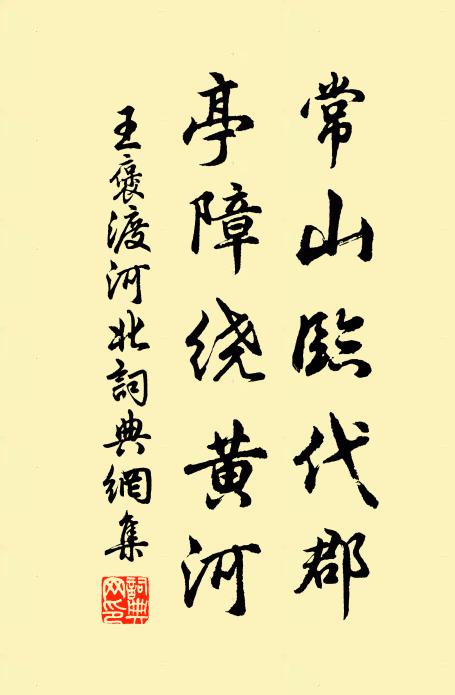 常山臨代郡
亭障绕黄河
王褒渡河北詞典網集
詞典网印